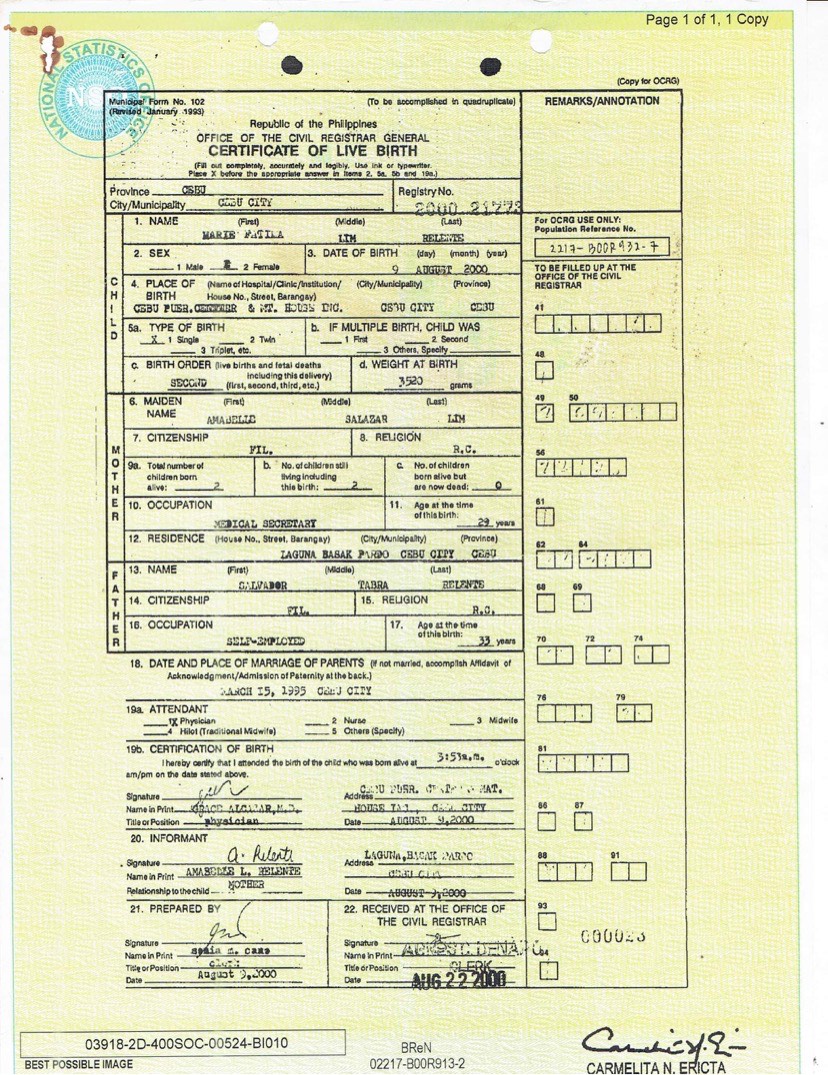 Page 1 of 1, 1 Copy
NATIONAL STATISTICS OFFICE
(Copy for OCRG)
Municipal Form No. 102
(To be accomplished in quadruplicate)
(Revised January 1993)
REMARKS/ANNOTATION
Republic of the Philippines
OFFICE OF THE CIVIL REGISTRAR GENERAL
CERTIFICATE OF LIVE BIRTH
(Fill out completely, accurately and legibly. Use ink or typewriter.
Place X before the appropriate answer in items 2, 5a, 5b and 19a.)
Province CEBU
Registry No.
City/Municipality CEBU CITY
2000 21773
For OCRG USE ONLY:
Population Reference No.
2217-B00R932-7
TO BE FILLED UP AT THE
OFFICE OF THE CIVIL
REGISTRAR
CHILD
1. NAME (First) (Middle) (Last)
MARIE LIM RELENTE
2. SEX
1 Male 2 Female
3. DATE OF BIRTH (day) (month) (year)
9 AUGUST 2000
4. PLACE OF BIRTH (Name of Hospital/Clinic/Institution/ (City/Municipality) (Province)
House No., Street, Barangay)
CEBU PUER. & MT. HOUSE INC. CEBU CITY CEBU
5a. TYPE OF BIRTH
X 1 Single 2 Twin
3 Triplet, etc.
b. IF MULTIPLE BIRTH, CHILD WAS
1 First 2 Second
3 Others, Specify
c. BIRTH ORDER (live births and fetal deaths
including this delivery)
SECOND (first, second, third, etc.)
d. WEIGHT AT BIRTH
3520 grams
MOTHER
6. MAIDEN NAME (First) (Middle) (Last)
AMABELLE SALAZAR LIM
7. CITIZENSHIP
FIL.
8. RELIGION
R.C.
9a. Total number of
children born
alive: 2
b. No. of children still
living including
this birth: 2
c. No. of children
born alive but
are now dead: 0
10. OCCUPATION
MEDICAL SECRETARY
11. Age at the time
of this birth:
29 years
12. RESIDENCE (House No., Street, Barangay) (City/Municipality) (Province)
LAGUNA BASAK PARDO CEBU CITY CEBU
FATHER
13. NAME (First) (Middle) (Last)
SALVADOR TABRA RELENTE
14. CITIZENSHIP
FIL.
15. RELIGION
R.C.
16. OCCUPATION
SELF-EMPLOYED
17. Age at the time
of this birth:
33 years
18. DATE AND PLACE OF MARRIAGE OF PARENTS (If not married, accomplish Affidavit of
Acknowledgment/Admission of Paternity at the back.)
MARCH 15, 1995 CEBU CITY
19a. ATTENDANT
1X Physician 2 Nurse 3 Midwife
4 Hilot (Traditional Midwife) 5 Others (Specify)
19b. CERTIFICATION OF BIRTH
I hereby certify that I attended the birth of the child who was born alive at 3:53a.m. o'clock
am/pm on the date stated above.
Signature
Address CEBU PUER. MAT.
Name in Print GRACE ALCAZAR, M.D.
HOUSE CEBU CITY
Title or Position physician
Date AUGUST 9,2000
20. INFORMANT
Signature A. Relente
Address LAGUNA, BASAK PARDO
Name in Print AMABELLE L. RELENTE
CEBU CITY
Relationship to the child MOTHER
Date AUGUST 9,2000
21. PREPARED BY
Signature
Name in Print
Title or Position clerk
Date August 9,2000
22. RECEIVED AT THE OFFICE OF
THE CIVIL REGISTRAR
Signature
Name in Print
Title or Position CLERK
Date AUG 22 2000
41
48
49 50
56
61
62 64
68 69
70 72 74
76 79
81
86 87
88 91
93
000023
94
03918-2D-400SOC-00524-BI010
BEST POSSIBLE IMAGE
BReN
02217-B00R913-2
CARMELITA N. ERICTA